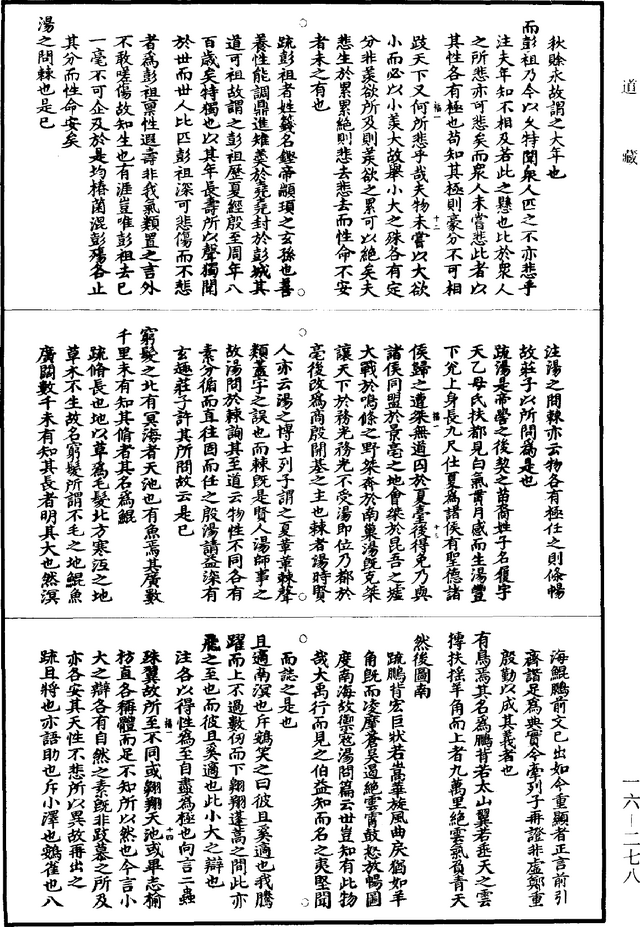 道藏
秋賒永故謂之大年也
而彭祖乃今以久特聞衆人匹之不亦悲乎
注夫年知不相及若此之懸也比於衆人
之所悲亦可悲矣而衆人未嘗悲此者以
其性各有極也苟知其極則豪分不可相
跂天下又何所悲乎哉夫物未嘗以大欲
小而必以小羨大故舉小大之殊各有定
分非羨欲所及則羨欲之累可以絶矣夫
悲生於累累絶則悲去悲去而性命不安
者未之有也
疏彭祖者姓籛名鏗帝顓頊之玄孫也善
養性能調鼎進雉羹於堯堯封於彭城其
道可祖故謂之彭祖歷夏經殷至周年八
百歲矣特獨也以其年長壽所以聲獨聞
於世而世人比匹彭祖深可悲傷而不悲
者爲彭祖禀性遐壽非我氣類置之言外
不敢嗟傷故知生也有涯豈唯彭祖去已
一毫不可企及於是均椿菌混彭殤各止
其分而性命安矣
湯之問棘也是已
注湯之問棘亦云物各有極任之則條暢
故莊子以所問爲是也
疏湯是帝嚳之後契之苗裔姓子名履字
天乙母氏扶都見白氣貫月感而生湯豐
下兊上身長九尺仕夏爲諸侯有聖德諸
侯歸之遭桀無道囚於夏臺後得免乃與
諸侯同盟於景亳之地會桀於昆吾之墟
大戰於鳴條之野桀奔於南巢湯既克桀
讓天下於務光務光不受湯即位乃都於
亳後改爲商殷開基之主也棘者湯時賢
人亦云湯之博士列子謂之夏革革棘聲
類蓋字之誤也而棘既是賢人湯師事之
故湯問於棘詢其至道云物性不同各有
素分循而直往因而任之殷湯請益深有
玄趣莊子許其所問故云是已
窮髮之北有冥海者天池也有魚焉其廣數
千里未有知其脩者其名爲鯤
疏脩長也地以草爲毛髮北方寒沍之地
草木不生故名窮髮所謂不毛之地鯤魚
廣闊數千未有知其長者明其大也然溟
海鯤鵬前文已出如今重顯者正言前引
齊諧足爲典實今牽列子再證非虛鄭重
殷勤以成其義者也
有鳥焉其名爲鵬背若太山翼若垂天之雲
摶扶揺羊角而上者九萬里絶雲氣負青天
然後圖南
疏鵬背宏巨狀若嵩華旋風曲戾猶如羊
角既而凌摩蒼昊遏絶雲霄鼓怒放暢圖
度南海故禦寇湯問篇云世豈知有此物
哉大禹行而見之伯益知而名之夷堅聞
而誌之是也
且適南溟也斥鴳笑之曰彼且奚適也我騰
躍而上不過數仞而下翱翔蓬蒿之間此亦
飛之至也而彼且奚適也此小大之辯也
注各以得性爲至自盡爲極也向言二蟲
殊翼故所至不同或翱翔天池或畢志榆
枋直各稱體而足不知所以然也今言小
大之辯各有自然之素既非跂慕之所及
亦各安其天性不悲所以異故再出之
疏且將也亦語助也斥小澤也鴳雀也八
一六—二七八